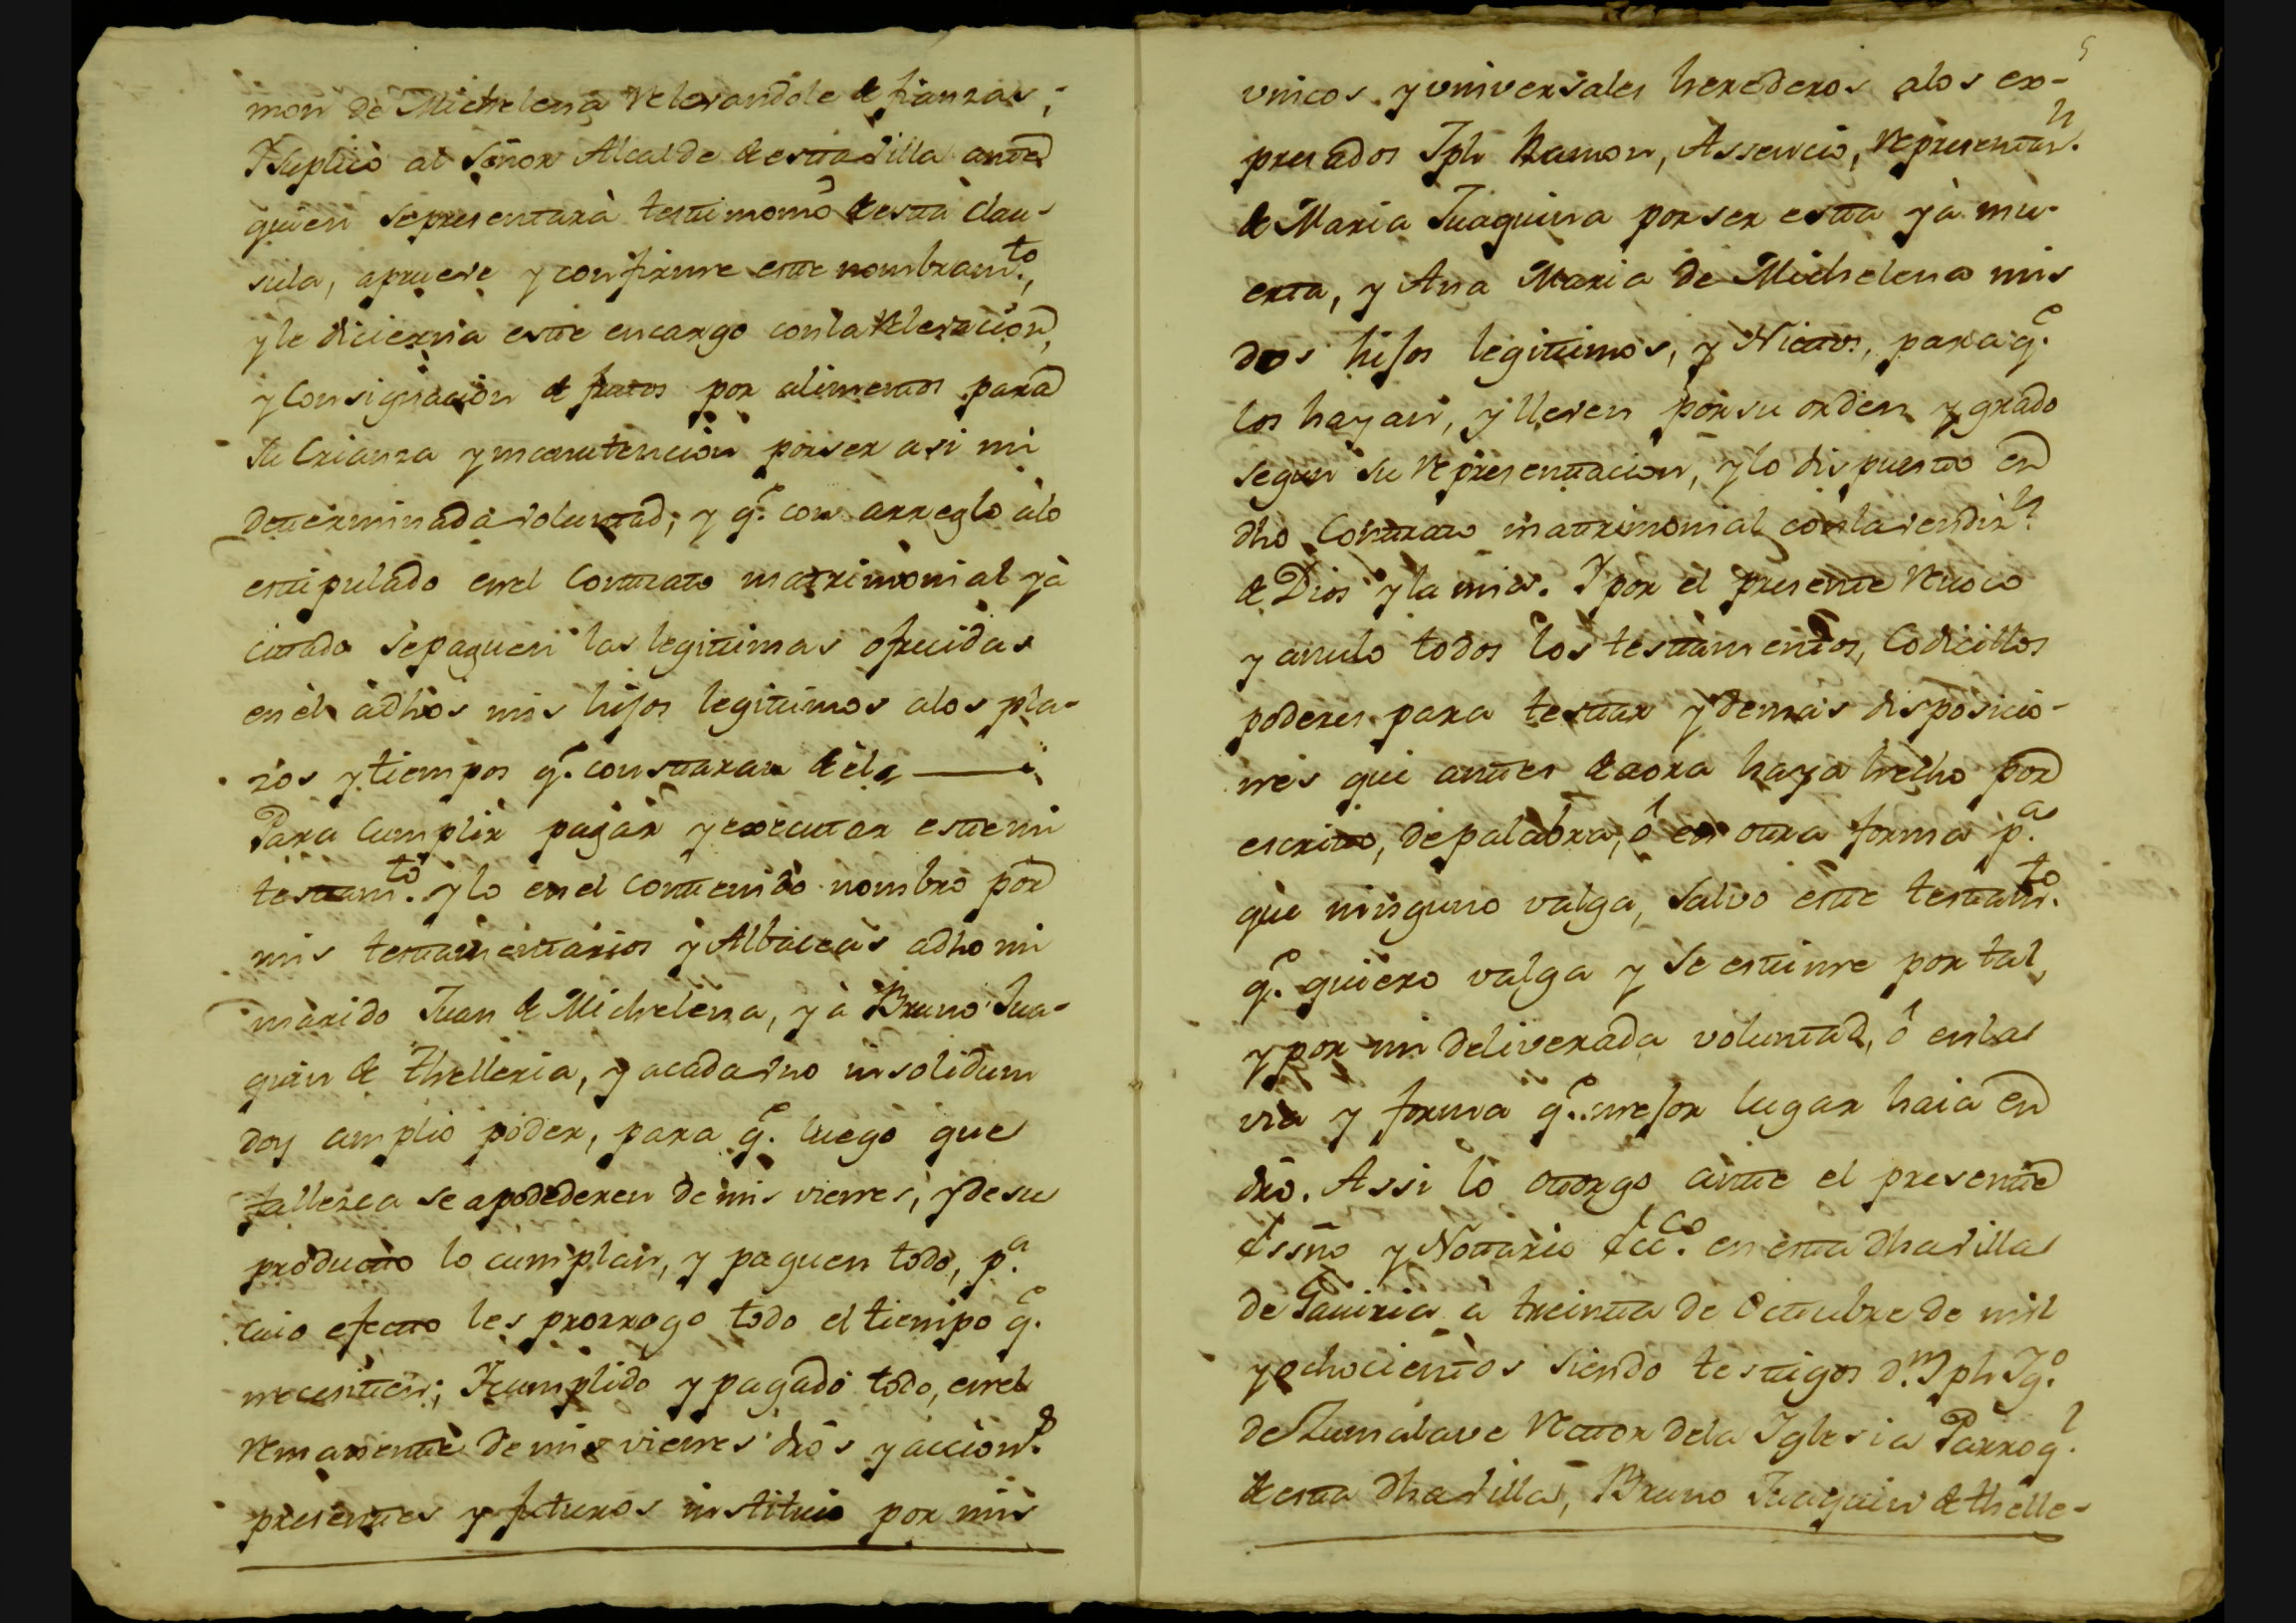 mon de Michelena relevandole de fianzas;
Y suplico al señor Alcalde de esta villa ante
quien se presentarà testimonio de esta clau-
sula, aprueve y confirme este nombram.to,
y le dicierna este encargo con la relevacion,
y consignacion de frutos por alimentos para
su Crianza y manutencion por ser asi mi
determinada voluntad; y q.e con arreglo alo
estipulado en el Contrato matrimonial yà
citado se paguen las legitimas ofrecidas
en èl àdhos mis hijos legitimos alos pla-
zos y tiempos q.e constaran de èl
Para Cumplir pagar y executar este mi
testam.to y lo en el contenido nombro por
mis testamentarios y Albaceas adho mi
marido Juan de Michelena, y à Bruno Jua-
quin de Thelleria, y acada vno insolidum
doy amplio poder, para q.e luego que
fallezca se apodederen de mis vienes, y de su
producto lo cumplan, y paguen todo, p.a
cuio efecto les prorrogo todo el tiempo q.e
necesiten; Y cumplido y pagado todo, en el
remanente de mis vienes dros y accion.s
presentes y futuros instituio por mis
5
vnicos y vniversales herederos alos ex-
presados Jph Ramon, Assencio, representan.n
de Maria Juaquina por ser esta yà mu-
erta, y Ana Maria de Michelena mis
dos hijos legitimos, y Nietos, para q.e
los hayan, y lleven por su orden y grado
segun su representacion, y lo dispuesto en
dho Contrato matrimonial con la vendiz.n
de Dios y la mia. Y por el presente revoco
y anulo todos los testamentos, Codicillos
poderes para testar y demas disposicio-
nes que antes de aora haya hecho por
escrito, de palabra, ô en otra forma p.a
que ninguno valga, salvo este testam.to
q.e quiero valga y se estime por tal,
y por mi deliverada voluntad, ô en la
via y forma q.e mejor lugar haia en
dro. Assi lo otorgo ante el presente
Essno y Notario Ecc.co en esta dha villa
de Gaviria à treinta de Octubre de mil
y ochocientos siendo testigos d.n Jph Ig.o
de Zumalave Rector de la Iglesia Parroq.l
de esta dha villa, Bruno Juaquin de Thelle-